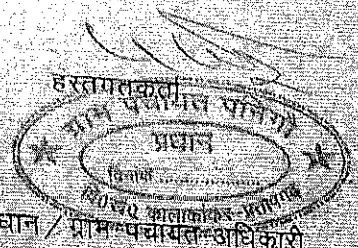 हस्तगतकर्ता
ग्राम पंचायत
प्रधान
वि०ख० कालाकांकर-प्रतापगढ़
धान / ग्राम पंचायत अधिकारी